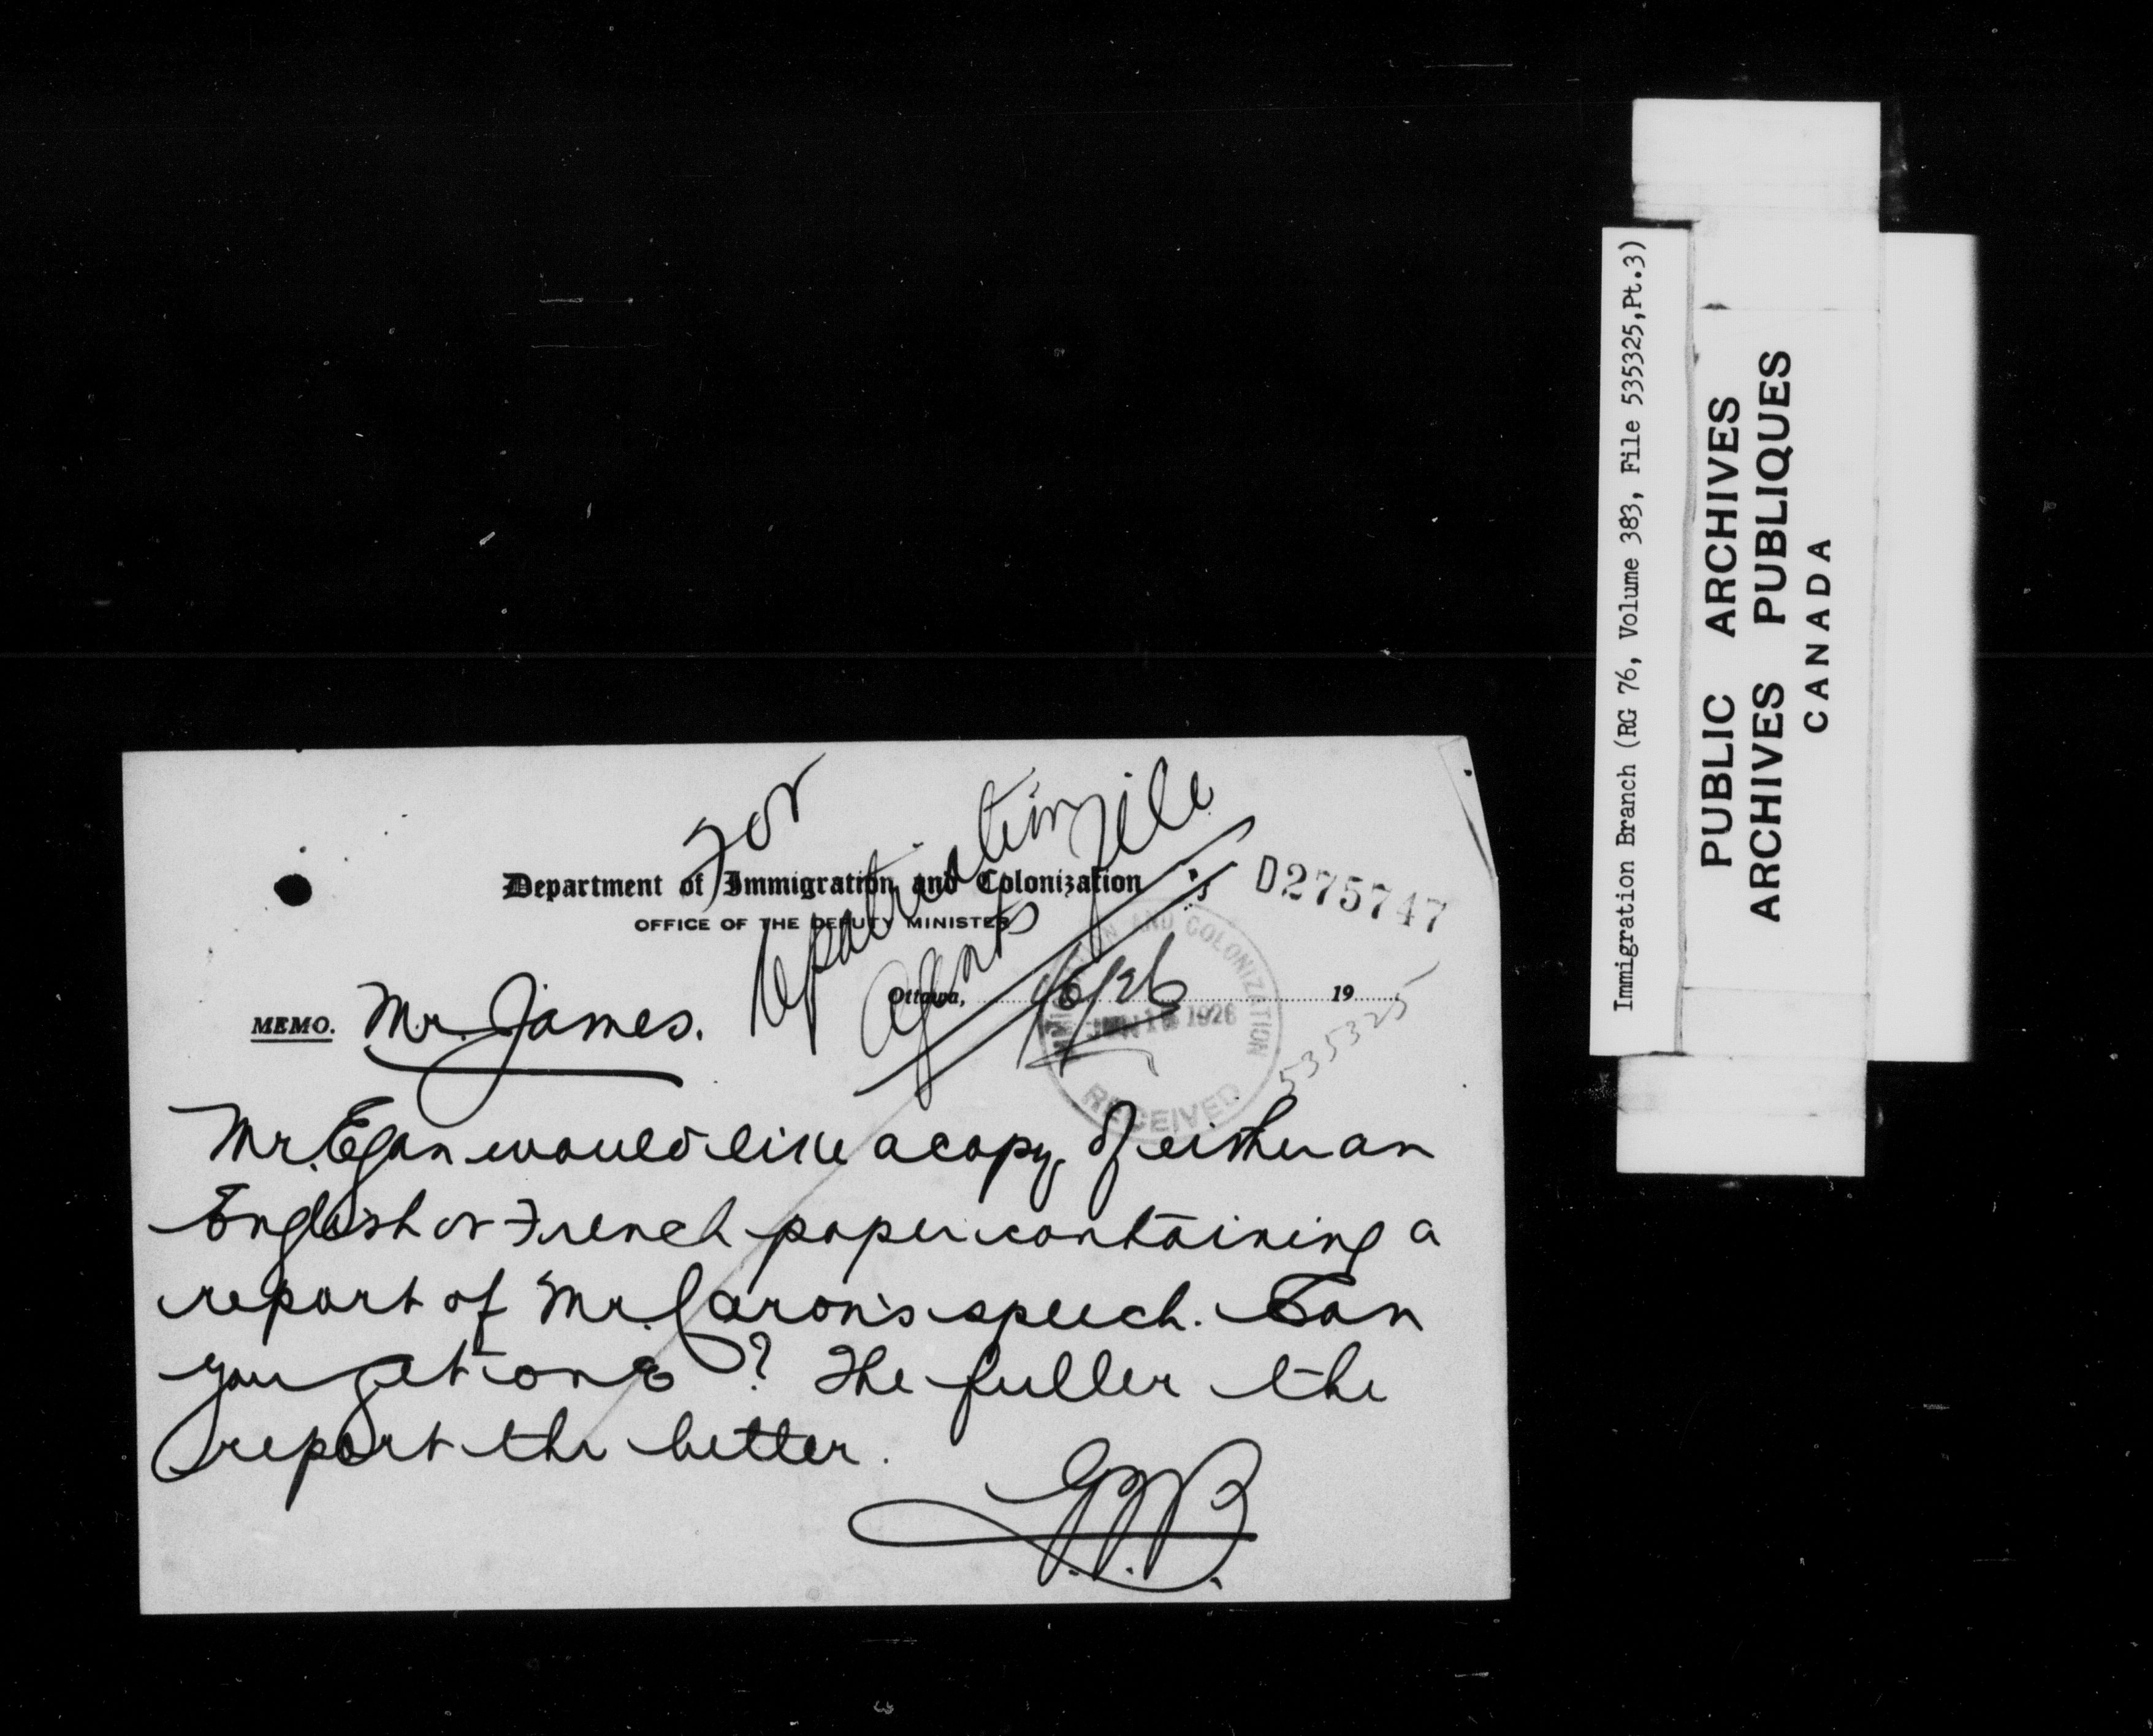 For
repatriation
agents file
Department of Immigration and Colonization
OFFICE OF THE DEPUTY MINISTER
D275747
Ottawa, 19
IMMIGRATION AND COLONIZATION
1926
RECEIVED
535325
MEMO. Mr. James.
Mr. Egan would like a copy of either an
English or French paper containing a
report of Mr. Caron's speech. Can
you get one? The fuller the
report the better.
Immigration Branch (RG 76, Volume 383, File 535325,Pt.3)
PUBLIC ARCHIVES
ARCHIVES PUBLIQUES
CANADA